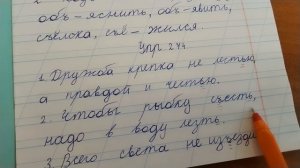 объ-яснить, объ-явить,
съёлока, съё-жился.
Упр 244
1 Дружба крепка не лестью,
а правдой и честью.
2. Чтобы рыбку съесть,
надо в воду лезть.
3. Всего света не изъезди